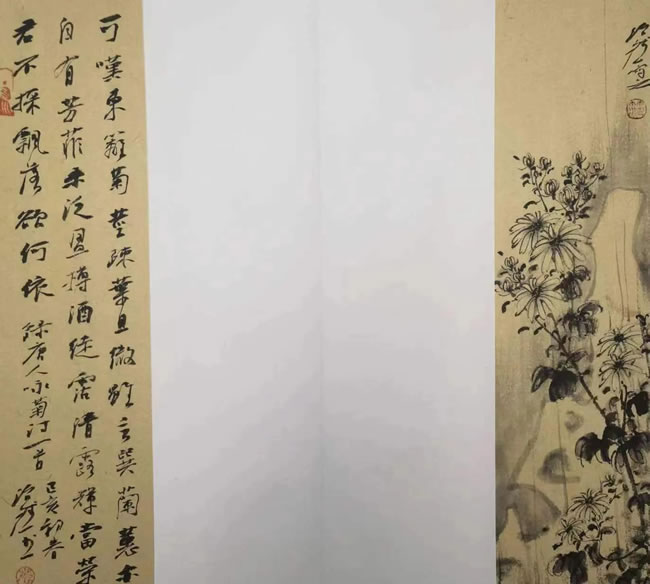 可嘆東籬菊莖疎葉且微雖言異蘭蕙亦
自有芳菲未泛盈樽酒徒霑清露輝當榮
君不採飄落欲何依 録唐人咏菊诗一首
己亥初春